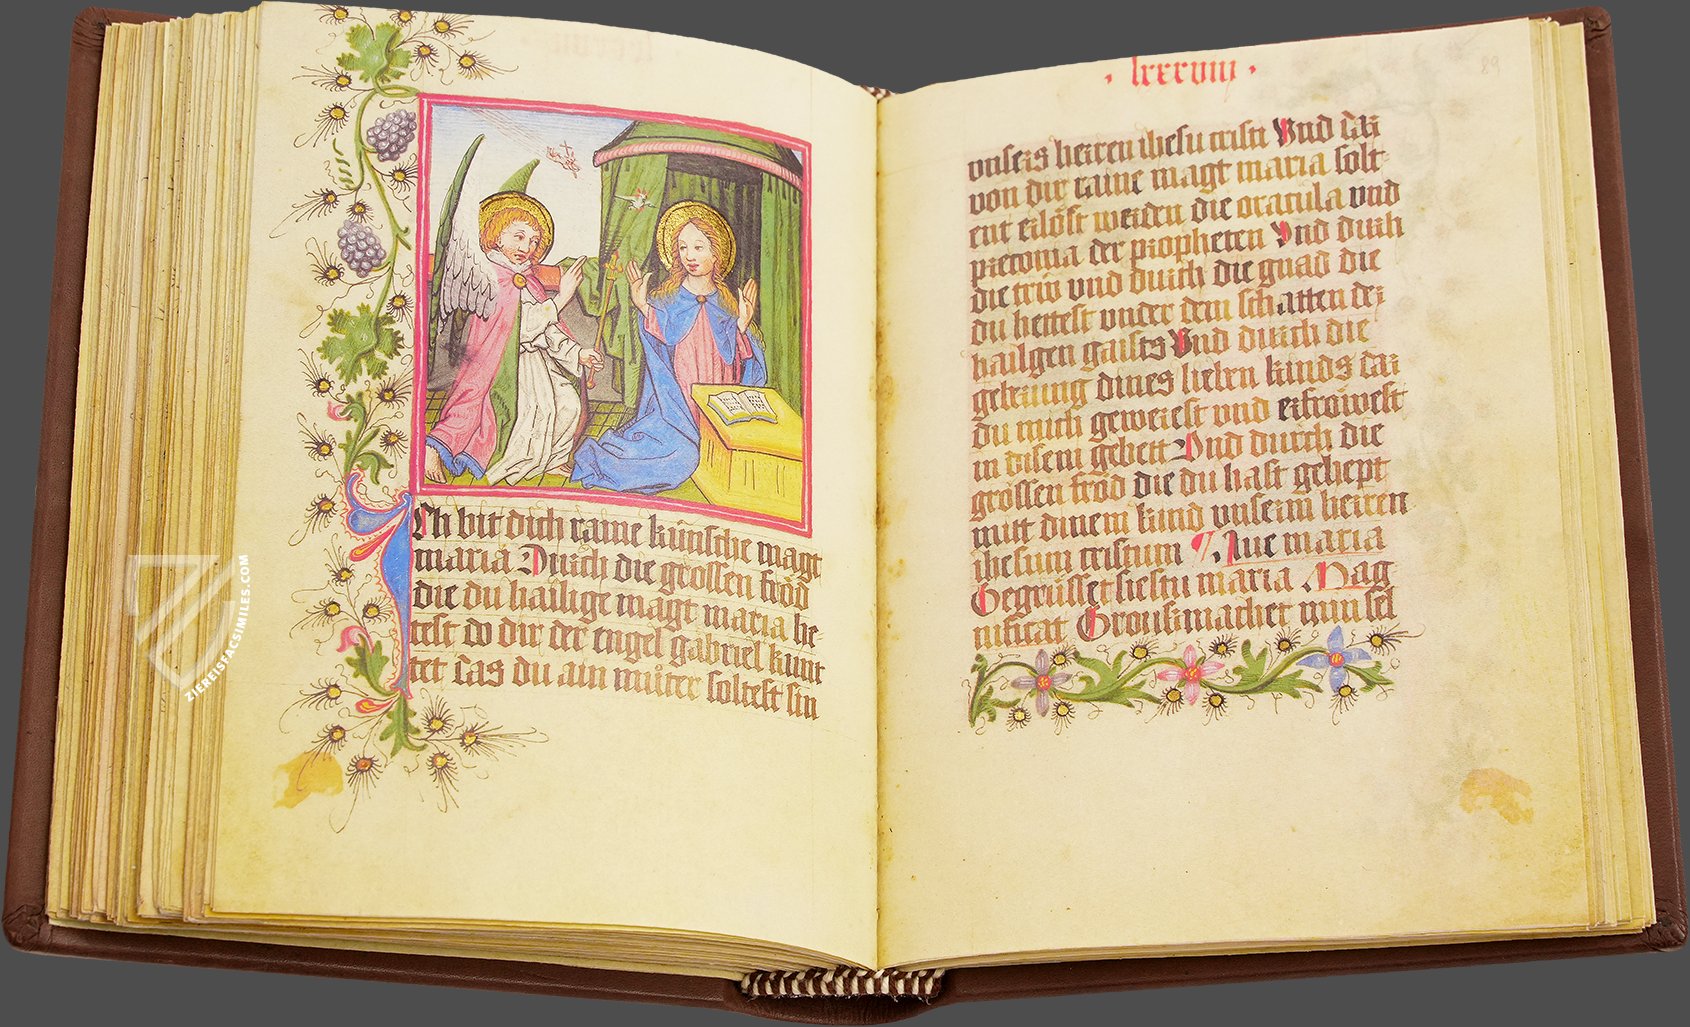 Ich bit dich raine künsche magt
maria Durch die grossen fröd
die du hailige magt maria he-
test do dir der engel gabriel kunt
tet das du ain müter soltest sin
· lxxxviiij ·
89
unsers herren ihesu cristi Und das
von dir raine magt maria solt-
ent erlöst werden die oracula und
pretonia der propheten Und durch
die triw und durch die gnad die
du hettest under dem schatten der
hailgen gaists Und durch die
geberung dines lieben kinds das
du mich gewerest und erfröwest
in disem gebett Und durch die
grossen fröd die du hast gehept
mitt dinem kind unserm herren
ihesum cristum Aue maria
Gegrüsset siestu maria Mag
nificat Grousmachet min sel
ZIEREISFACSIMILES.COM